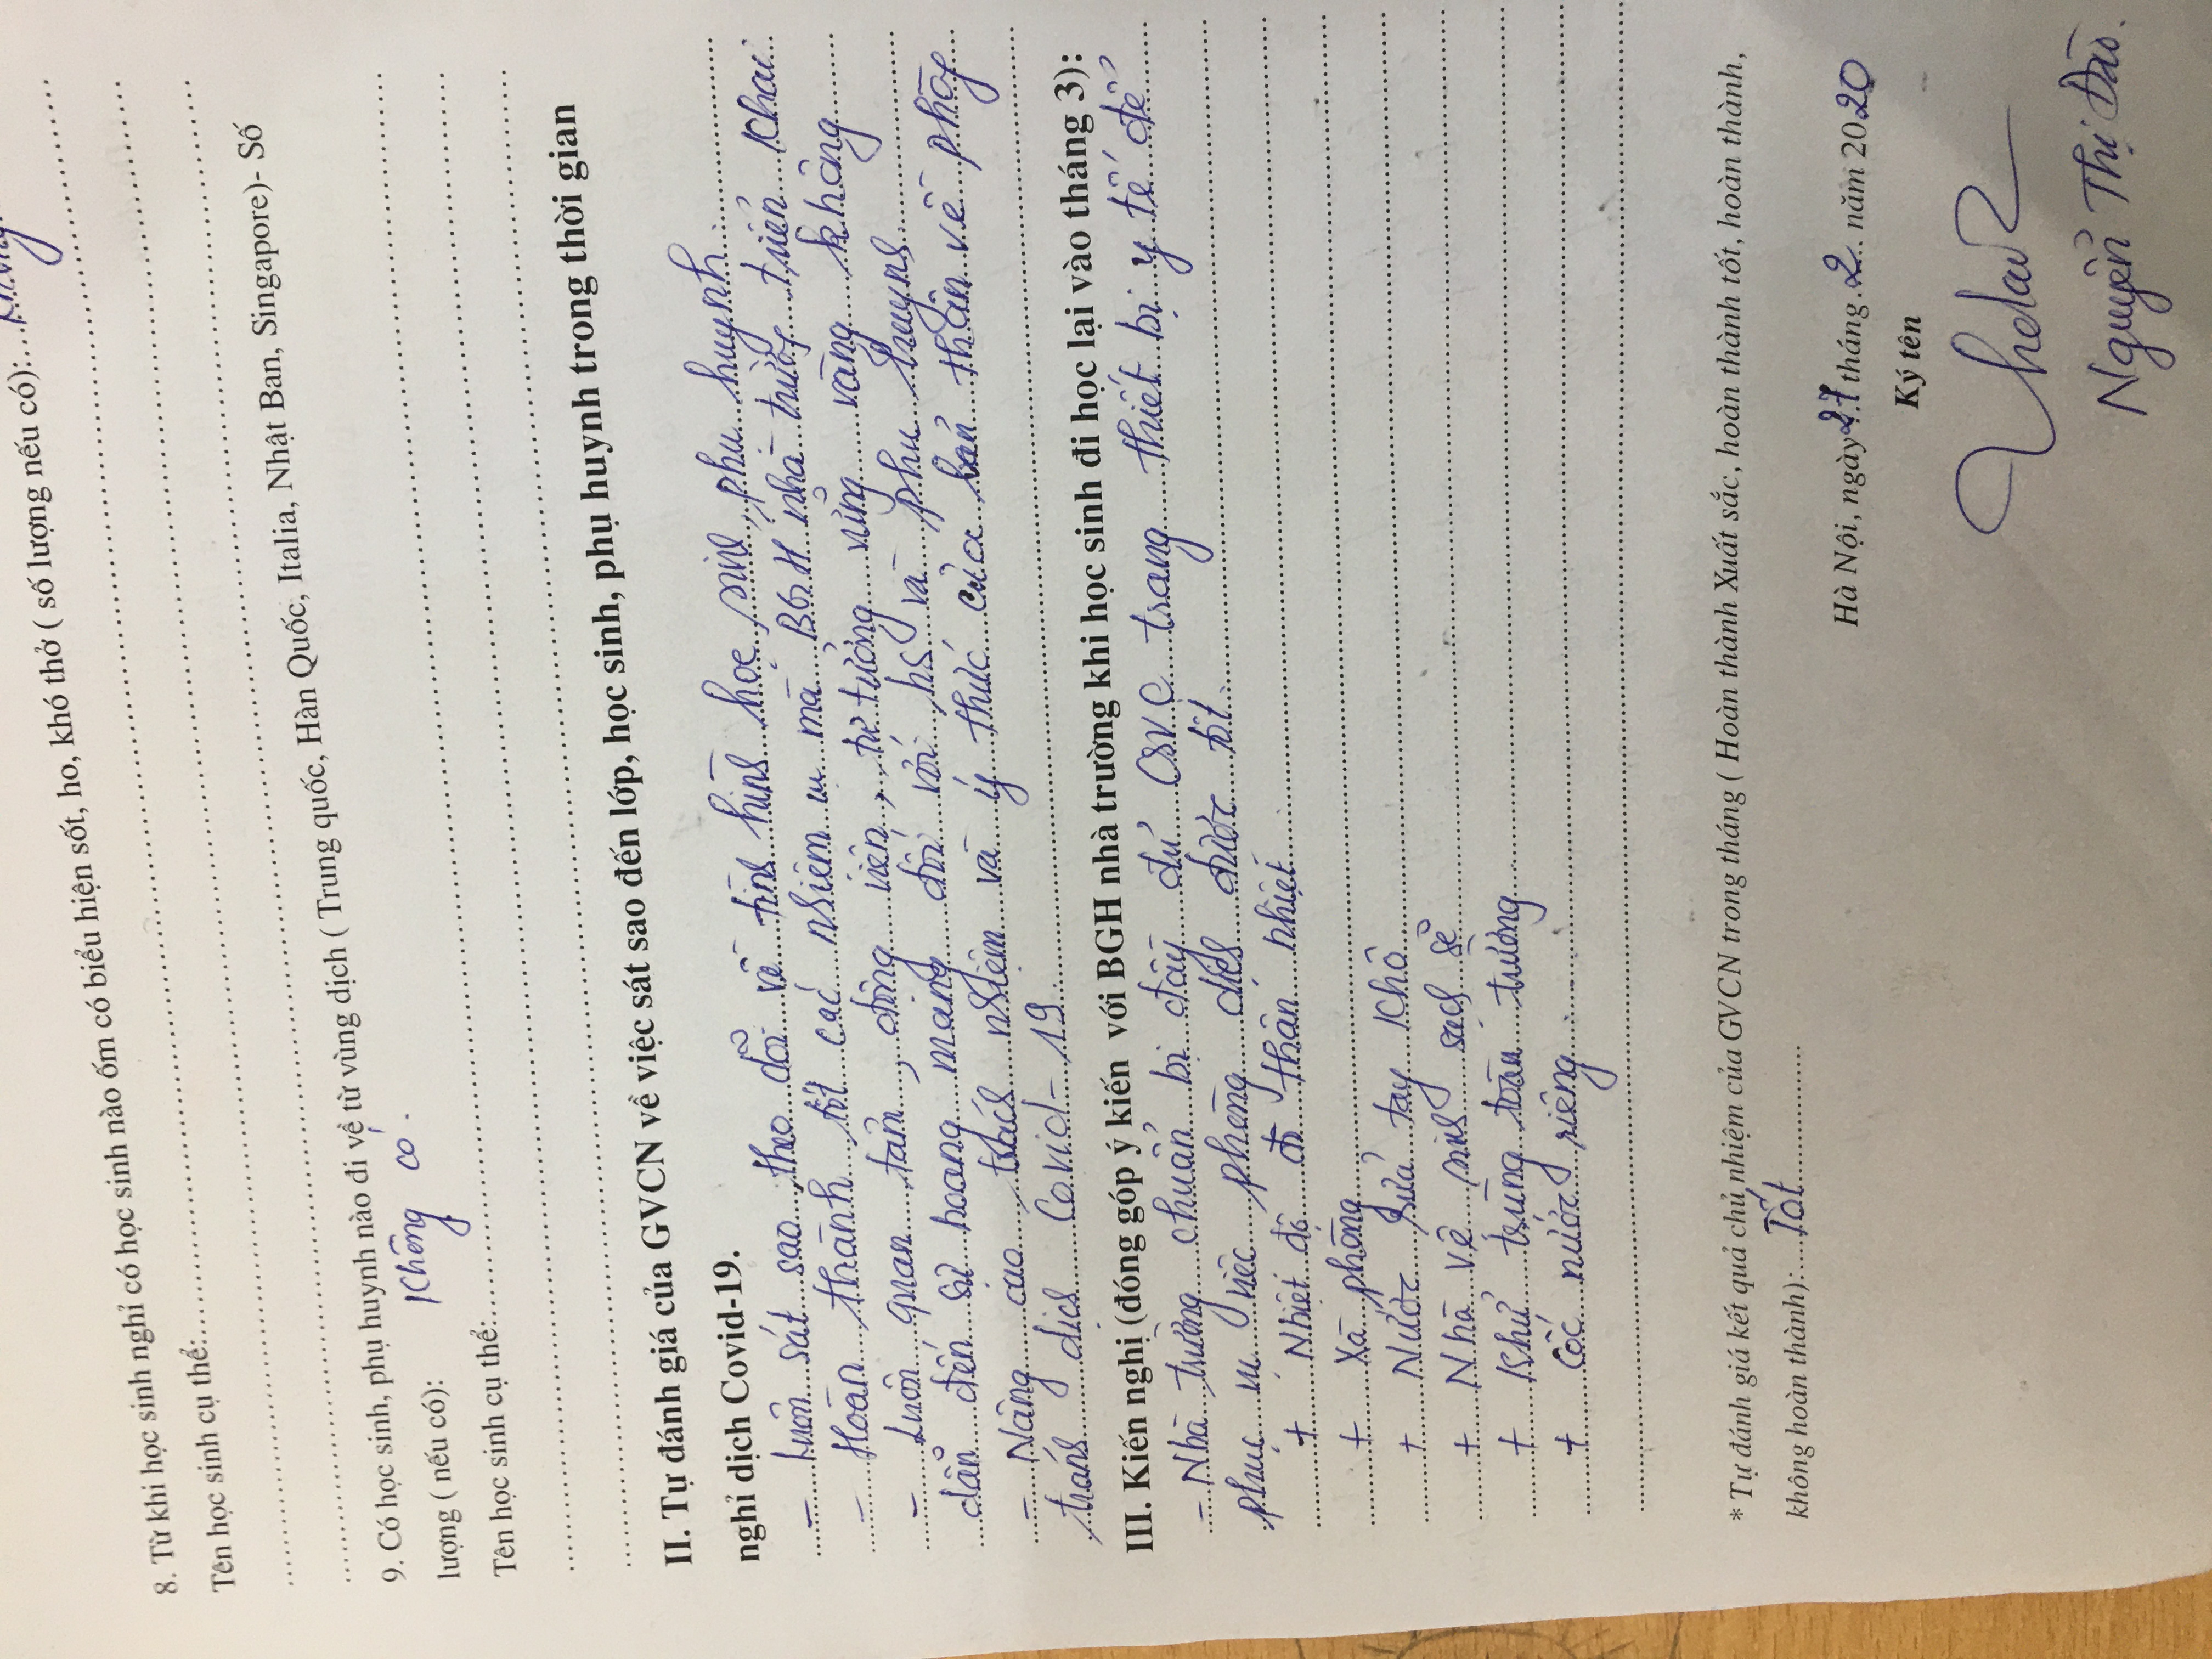 8. Từ khi học sinh nghỉ có học sinh nào ốm có biểu hiện sốt, ho, khó thở ( số lượng nếu có):
Tên học sinh cụ thể:
9. Có học sinh, phụ huynh nào đi về từ vùng dịch ( Trung quốc, Hàn Quốc, Italia, Nhật Ban, Singapore)- Số
lượng ( nếu có): Không có.
Tên học sinh cụ thể:
II. Tự đánh giá của GVCN về việc sát sao đến lớp, học sinh, phụ huynh trong thời gian
nghỉ dịch Covid-19.
- Luôn sát sao, theo dõi về tình hình học sinh, phụ huynh
- Hoàn thành tốt các nhiệm vụ mà BGH nhà trường triển khai
- Luôn quan tâm, động viên, tư tưởng vững vàng không
dẫn đến sự hoang mang đối với hs và phụ huynh
- Nâng cao trách nhiệm và ý thức của bản thân về phòng
tránh dịch Covid-19
III. Kiến nghị (đóng góp ý kiến với BGH nhà trường khi học sinh đi học lại vào tháng 3):
- Nhà trường chuẩn bị đầy đủ CSVC trang thiết bị y tế để
phục vụ việc phòng dịch được tốt.
+ Nhiệt độ đo thân nhiệt
+ Xà phòng
+ Nước rửa tay khô
+ Nhà vệ sinh sạch sẽ
+ Khử trùng toàn trường
+ Cốc nước riêng
* Tự đánh giá kết quả chủ nhiệm của GVCN trong tháng ( Hoàn thành Xuất sắc, hoàn thành tốt, hoàn thành,
không hoàn thành): Tốt
Hà Nội, ngày 27 tháng 2 năm 2020
Ký tên
Nguyễn Thị Đào.